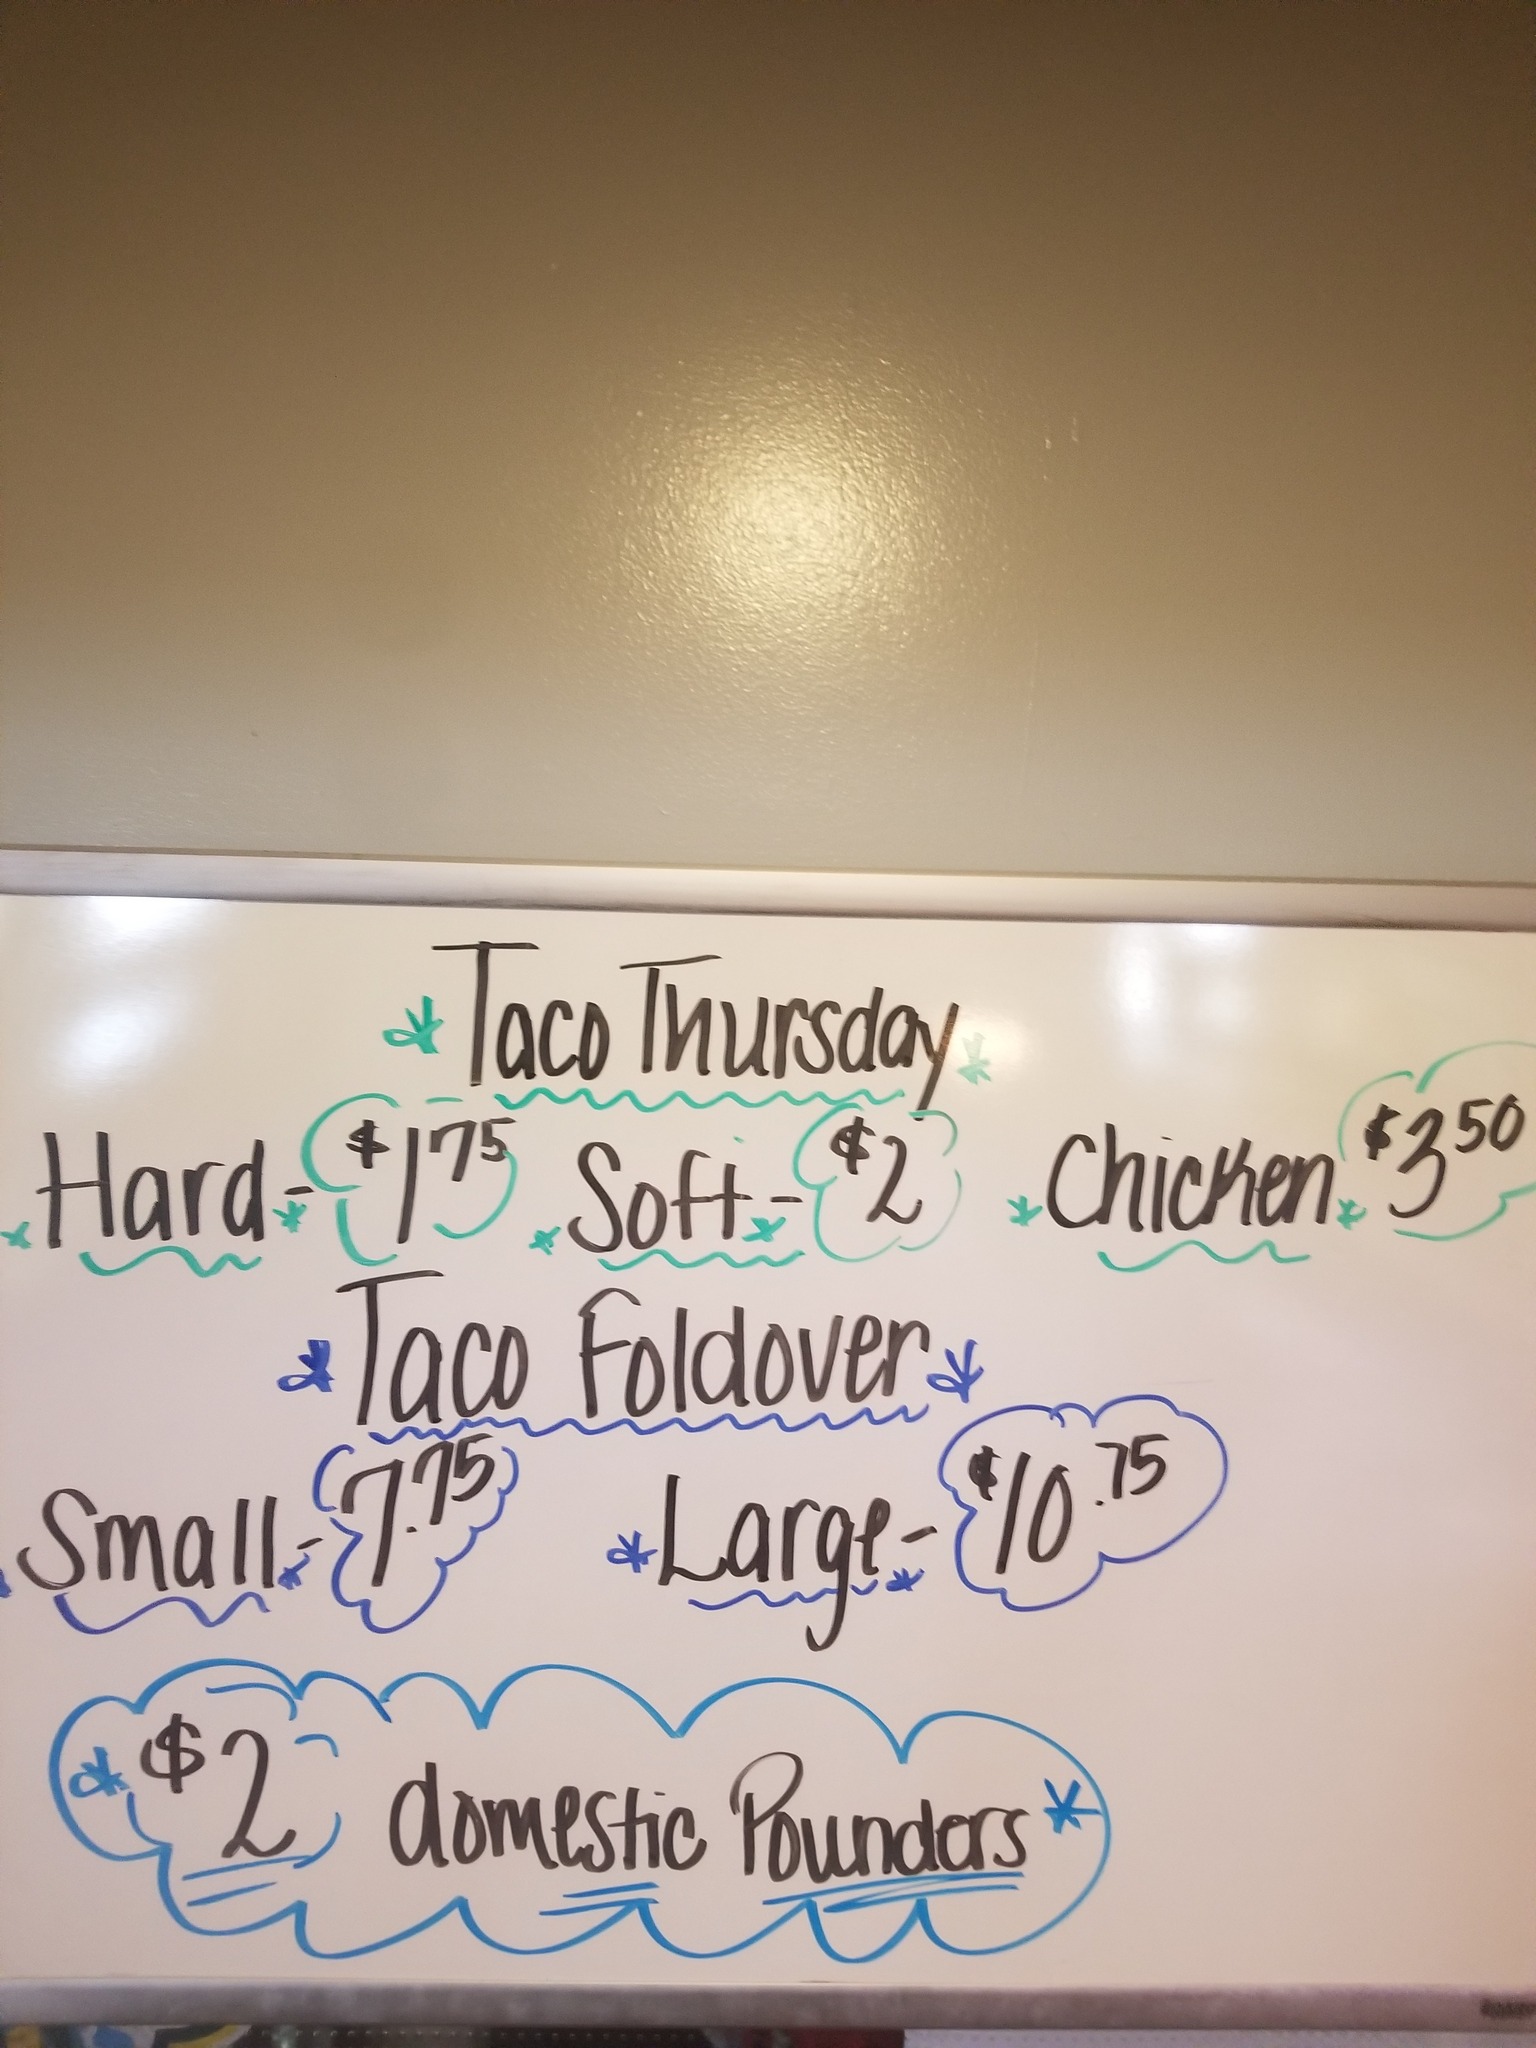 Taco Thursday
Hard - $1.75 Soft - $2 Chicken $3.50
Taco Foldover
Small - 7.75 Large - $10.75
$2 domestic Pounders